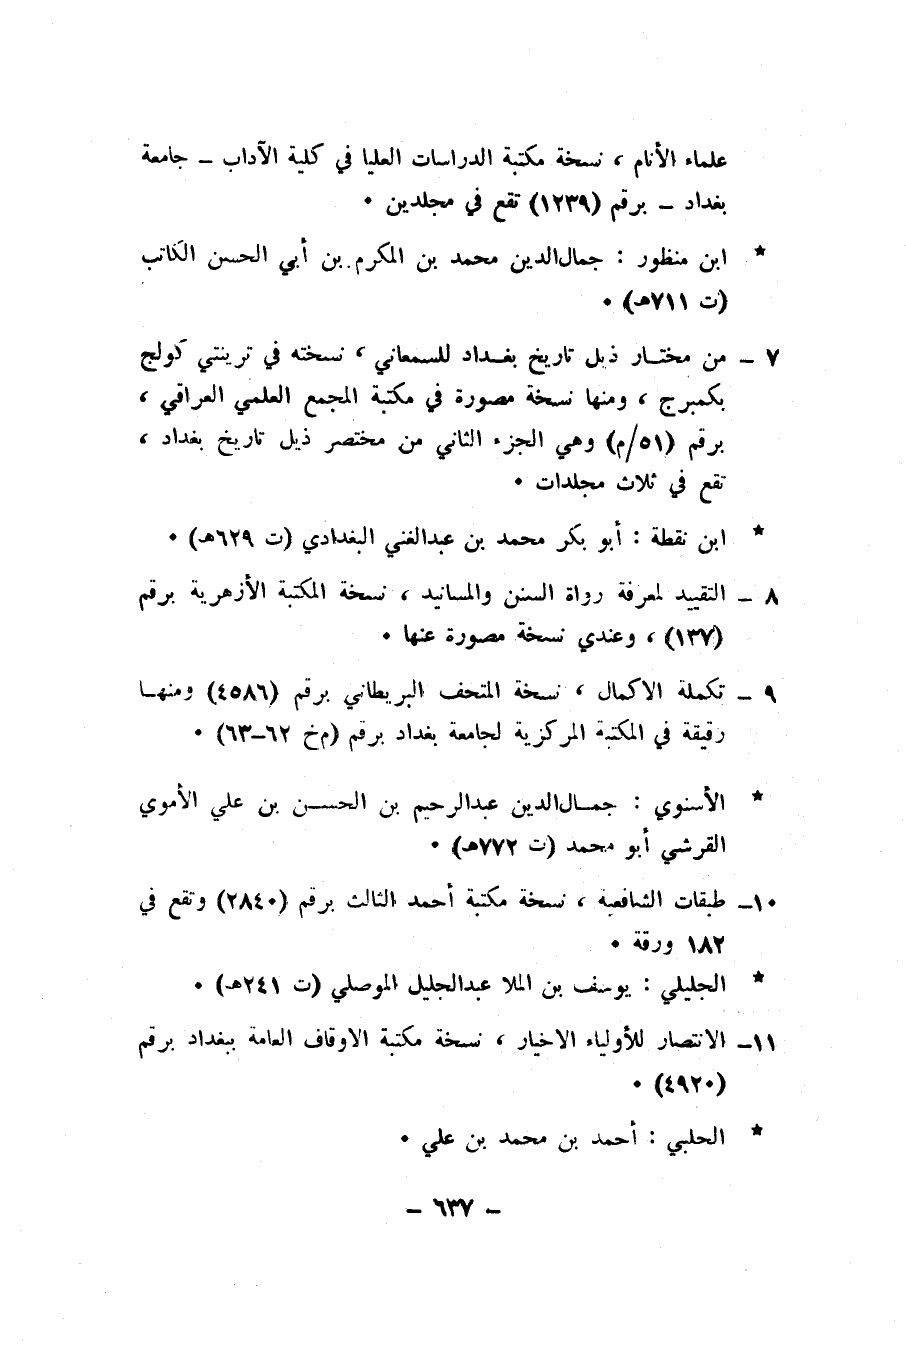 علماء الأنام ، نسخة مكتبة الدراسات العليا في كلية الآداب – جامعة
بغداد – برقم (١٢٣٩) تقع في مجلدين ٠
* ابن منظور : جمال‌الدين محمد بن المكرم بن أبي الحسن الكاتب
(ت ٧١١هـ) ٠
٧ – من مختـار ذيل تاريخ بغـداد للسمعاني ، نسخته في ترينتي كولج
بكمبرج ، ومنها نسخة مصورة في مكتبة المجمع العلمي العراقي ،
برقم (٥١/م) وهي الجزء الثاني من مختصر ذيل تاريخ بغداد ،
تقع في ثلاث مجلدات ٠
* ابن نقطة : أبو بكر محمد بن عبدالغني البغدادي (ت ٦٢٩هـ) ٠
٨ – التقييد لمعرفة رواة السنن والمسانيد ، نسخة المكتبة الأزهرية برقم
(١٣٧) ، وعندي نسخة مصورة عنها ٠
٩ – تكملة الاكمال ، نسخة المتحف البريطاني برقم (٤٥٨٦) ومنهـا
رقيقة في المكتبة المركزية لجامعة بغداد برقم (م‌خ ٦٢–٦٣) ٠
* الأسنوي : جمـال‌الدين عبدالرحيم بن الحســن بن علي الأموي
القرشي أبو محمد (ت ٧٧٢هـ) ٠
١٠– طبقات الشافعية ، نسخة مكتبة أحمد الثالث برقم (٢٨٤٠) وتقع في
١٨٢ ورقة ٠
* الجليلي : يوسف بن الملا عبدالجليل الموصلي (ت ٢٤١هـ) ٠
١١– الانتصار للأولياء الاخيار ، نسخة مكتبة الاوقاف العامة ببغداد برقم
(٤٩٢٠) ٠
* الحلبي : أحمد بن محمد بن علي ٠
– ٦٣٧ –